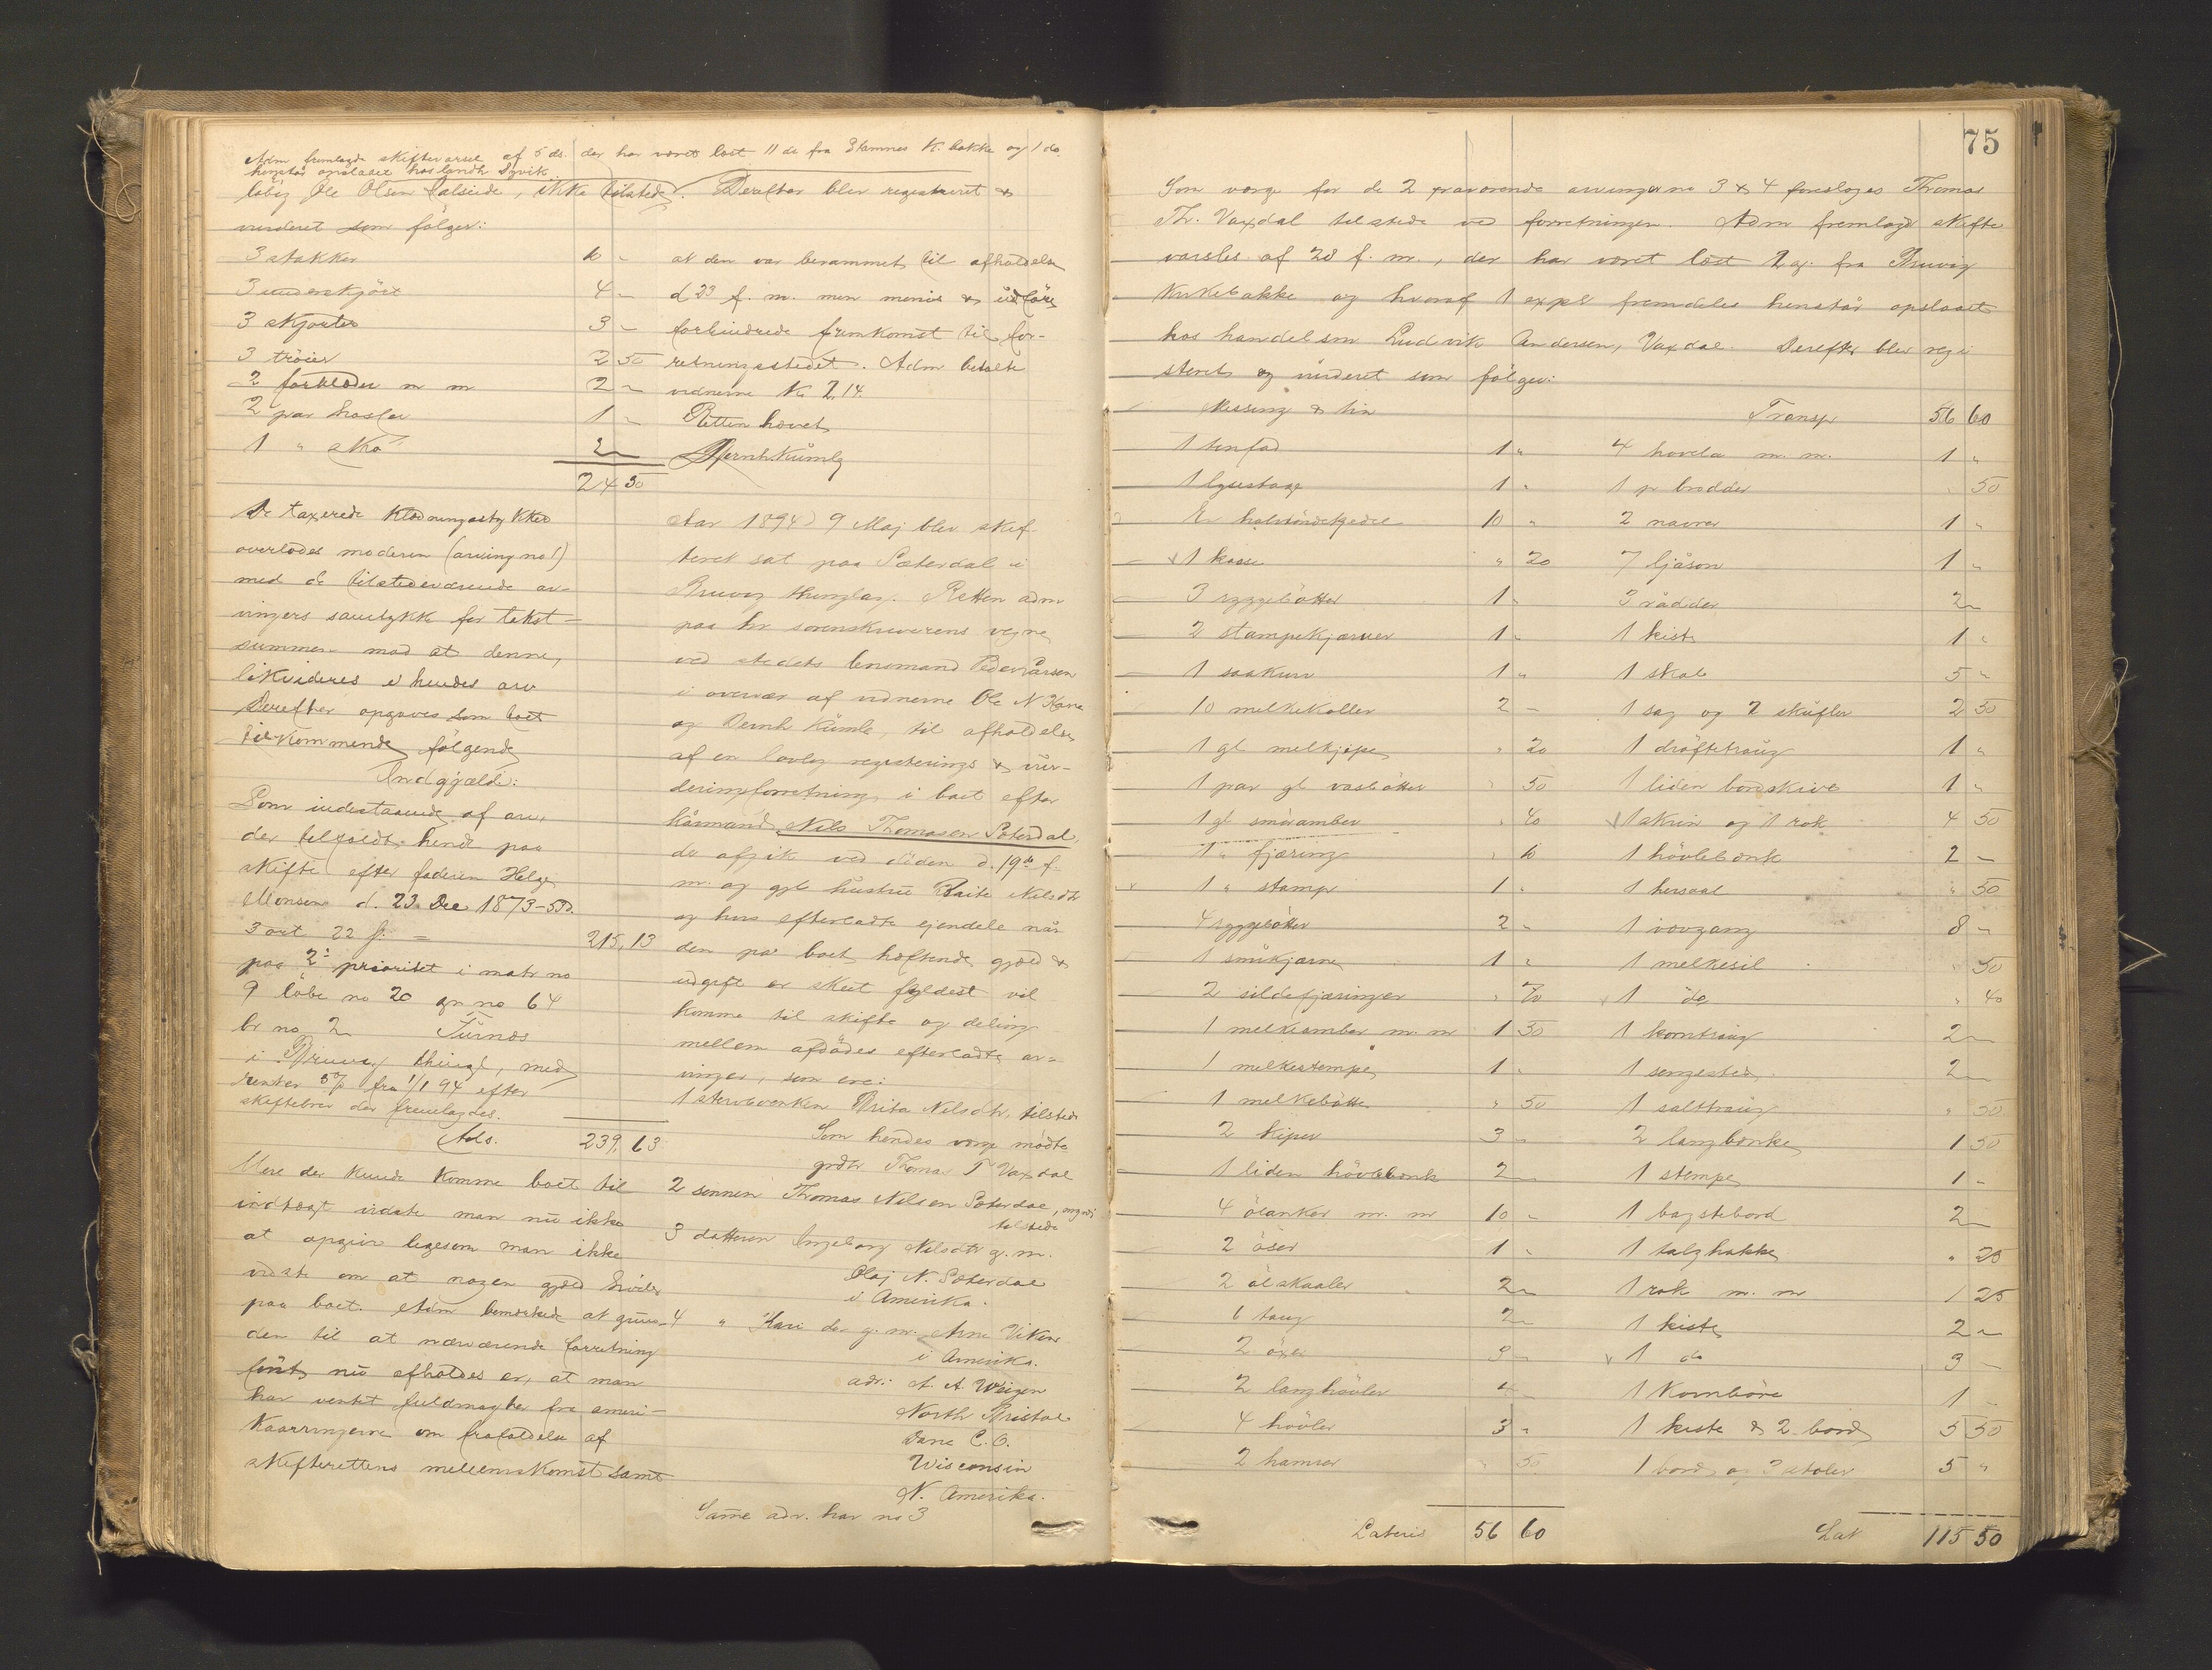 Adm fremlagde skiftevarsel af 5 ds. der har været læst 11 ds fra Stamnes K. bakke og 1 do
henstår opslaaet hos landh
løbig Ole Olsen Dalseide, ikke tilstede. Derefter blev registreret &
vurderet som følger:
3 stakker 10 -
3 underskjört 4 -
3 skjorter 3 -
3 tröier 2 50
2 forklæder m m 2 -
2 par hoser 1 -
1 " sko 2 -
24 50
De taxerede klædningsstykker
overlodes moderen (arving no 1)
med de tilstedeværende ar-
vingers samtykke for takst-
summen mod at denne
likvideres i hendes arv
Derefter opgaves som boet
tilkommende følgende
Indgjæld:
Som indestaaende af arv,
der tilfaldt hende paa
skifte efter faderen Helge
Monsen d. 23 Dec 1873 - 53 D.
3 ort 22 s. = 215,13
paa 2' prioritet i matr no
9 løbe no 20 gr no 64
br no 2 Turnes
i Bruvig thingl, med
renter 5 % fra 1/1 94 efter
skiftebrev der fremlagdes.
Tils. 239,63
Mere der kunde komme boet til
indtægt vidste man nu ikke
at opgive ligesom man ikke
vidste om at nogen gjæld hviler
paa boet. Adm bemærkede at grun-
den til at nærværende forretning
først nu afholdes er, at man
har ventet fuldmagter fra ameri-
kaarvingerne om frafaldelse af
skifterettens mellemkomst samt
at den var berammet til afholdelse
d 23 f. m. men menis & uidføre
forhindrede fremkomst til for-
retningsstedet. Adm betalte
vidnerne Kr 2,14.
Retten hævet
Bernh. Kumle
Aar 1894 d 9 Maj blev skif-
teret sat paa Sæterdal i
Bruvig thinglag. Retten adm
paa hr sorenskriverens vegne
ved stedets lensmand Peder Larsen
i overvær af vidnerne Ole N
og Bernh Kumle, til afholdelse
af en lovlig registrerings & vur-
deringsforretning i boet efter
kårmand Nils Thomasen Sæterdal,
der afgik ved døden d. 19de f.
m. og gjl hustru Brita Nilsdtr
og hvis efterladte ejendele når
den på boet heftende gjæld &
udgift er skeet fyldest vil
komme til skifte og deling
mellem afdødes efterladte ar-
vinger, som ere:
1 stervboenken Brita Nilsdtr. tilstede
Som hendes verge mødte
grdbr Thomas T Vaxdal
2 sønnen Thomas Nilsen Sæterdal, myndi
tilstede
3 datteren Ingeborg Nilsdtr g. m.
Olaj N. Sæterdal
i Amerika.
4 " Kari do g. m. Arne Viken
i Amerika.
adr: A. A. Weigen
North Bristol
Dane C. O.
Wisconsin
N. Amerika.
Same adr. har no 3
75
Som verge for de 2 fraværende arvinger no 3 & 4 foresloges Thomas
Th. Vaxdal tilstede ved forretningen. Adm fremlagd skifte
varsles af 28 f. m., der har været læst 2 g. fra Bruvig
Kirkebakke og hvoraf 1 expl fremdeles henstår opslaaet
hos handelsm Ludvik Andersen, Vaxdal. Derefter blev regi
streret og vurderet som følger:
Messing & tin
1 tinfad 1 "
1 lysestage 1 "
En halvtøndekjedel 10 "
1 kasse " 20
3 ryggebøtter 1 "
2 stampekjærner 1 "
1 saakurv 1 "
10 melkekoller 2 -
1 gl melkjipe " 20
1 par gl vasbøtter " 50
1 gl smöramber " 40
1 " fjæring " 10
1 " stampe 1 "
4 ryggebøtter 2 "
1 smörkjærne 1 "
2 sildefjæringer " 70
1 melkeamber m. m 1 50
1 melkestempe 1 "
1 melkebøtte " 50
2 kiper 3 -
1 liden høvlebenk 2 -
4 ölanker m. m 10 -
2 öser 1 "
2 ölskaaler 2 -
6 taug 2 -
2 öxer 3 -
2 langhøvler 4 -
4 høvler 3 "
2 hamrer " 50
Lateris 56 60
Transp 56 60
4 hovela m. m. 1 "
1 p brodder " 50
2 navrer 1 "
7 ljåron 1 "
3 rådder 2 -
1 kiste 1 "
1 skab 5 "
1 sag og 2 skufler 2 50
1 dröftetraug 1 "
1 liden bordskive 1 "
1 skrin og 1 rok 4 50
1 hövlebenk 2 -
1 " 50
1 vævgang 8 -
1 melkesil " 50
1 do " 40
1 korntraug 2 -
1 sengested 2 -
1 salttraug " 50
2 langbenke 1 50
1 stempe 1 -
1 bagstebord 2 -
1 talghakke " 25
1 rok m. m 1 25
1 kiste 2 -
1 do 3 -
1 Kornbøre 1 -
1 kiste & 2 bord 5 50
1 bord og 3 stoler 5 "
Lat 115 50